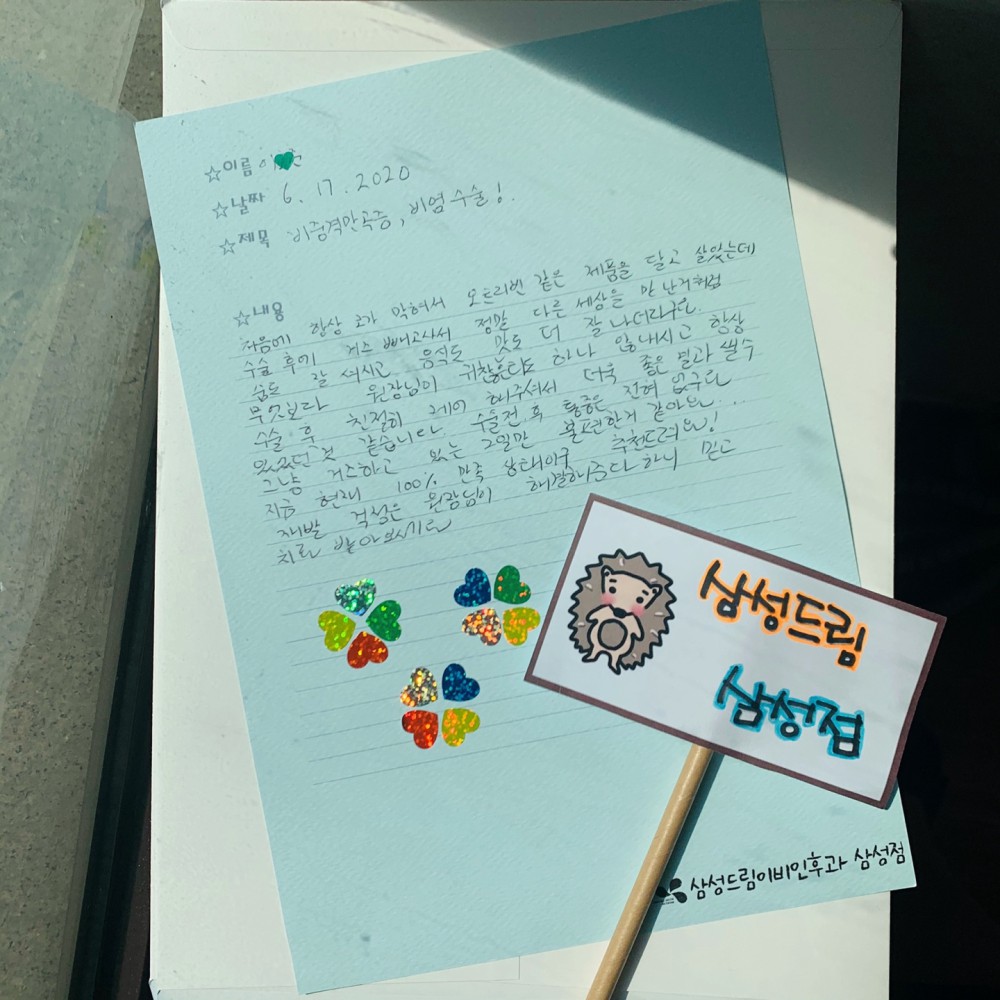 ☆이름 이
☆날짜 6. 17. 2020
☆제목 비중격만곡증, 비염 수술!
☆내용
처음에 항상 코가 막혀서 오트리빈 같은 제품을 달고 살았는데
수술 후에 거즈 빼고나서 정말 다른 세상을 만난거처럼
숨도 잘 쉬지고 음식도 맛도 더 잘 나더라구요.
무엇보다 원장님이 귀찮은티 하나 안내시고 항상
수술 후 친절히 케어 해주셔서 더욱 좋은 결과 쌀수
있었던 것 같습니다. 수술전 후 통증은 전혀 없구요
그냥 거즈하고 있는 2일만 불편한거 같아요...
지금 현재 100% 만족 상태이구 추천드려요!
재발 걱정은 원장님이 해결해주다하니 믿고
치료 받아보시기르
삼성드림
삼성점
삼성드림이비인후과 삼성점